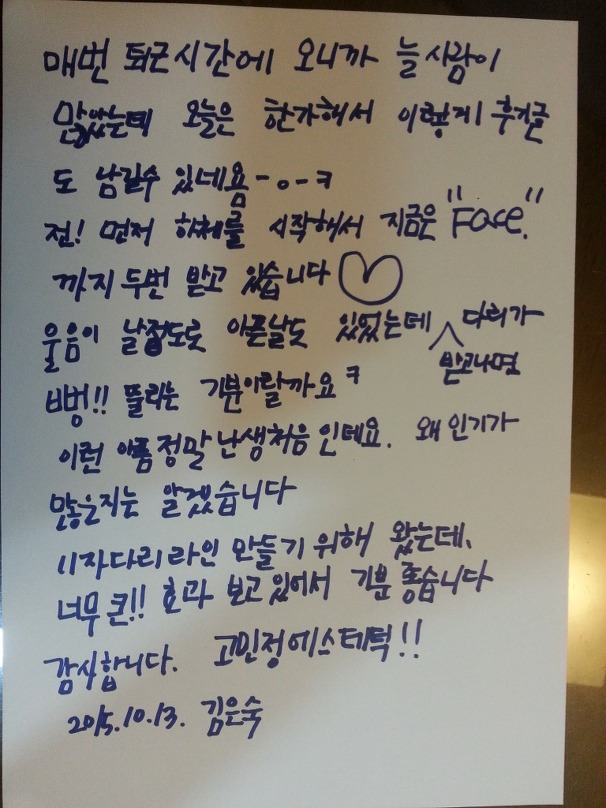 매번 퇴근시간에 오니까 늘 사람이
많았는데 오늘은 한가해서 이렇게 후기글
도 남길수 있네욤 - ㅇ - ㅋ
전! 먼저 하체를 시작해서 지금은 "Face."
까지 두번 받고 있습니다 ♡
울음이 날정도로 아픈날도 있었는데 받고나면 다리가
뻥!! 뚤리는 기분이랄까요 ㅋ
이런 아픔 정말 난생처음 인데요. 왜 인기가
많은지는 알겠습니다
11자다리라인 만들기 위해 왔는데,
너무 큰!! 효과 보고 있어서 기분 좋습니다
감사합니다. 고민정에스테틱!!
2015.10.13. 김은숙